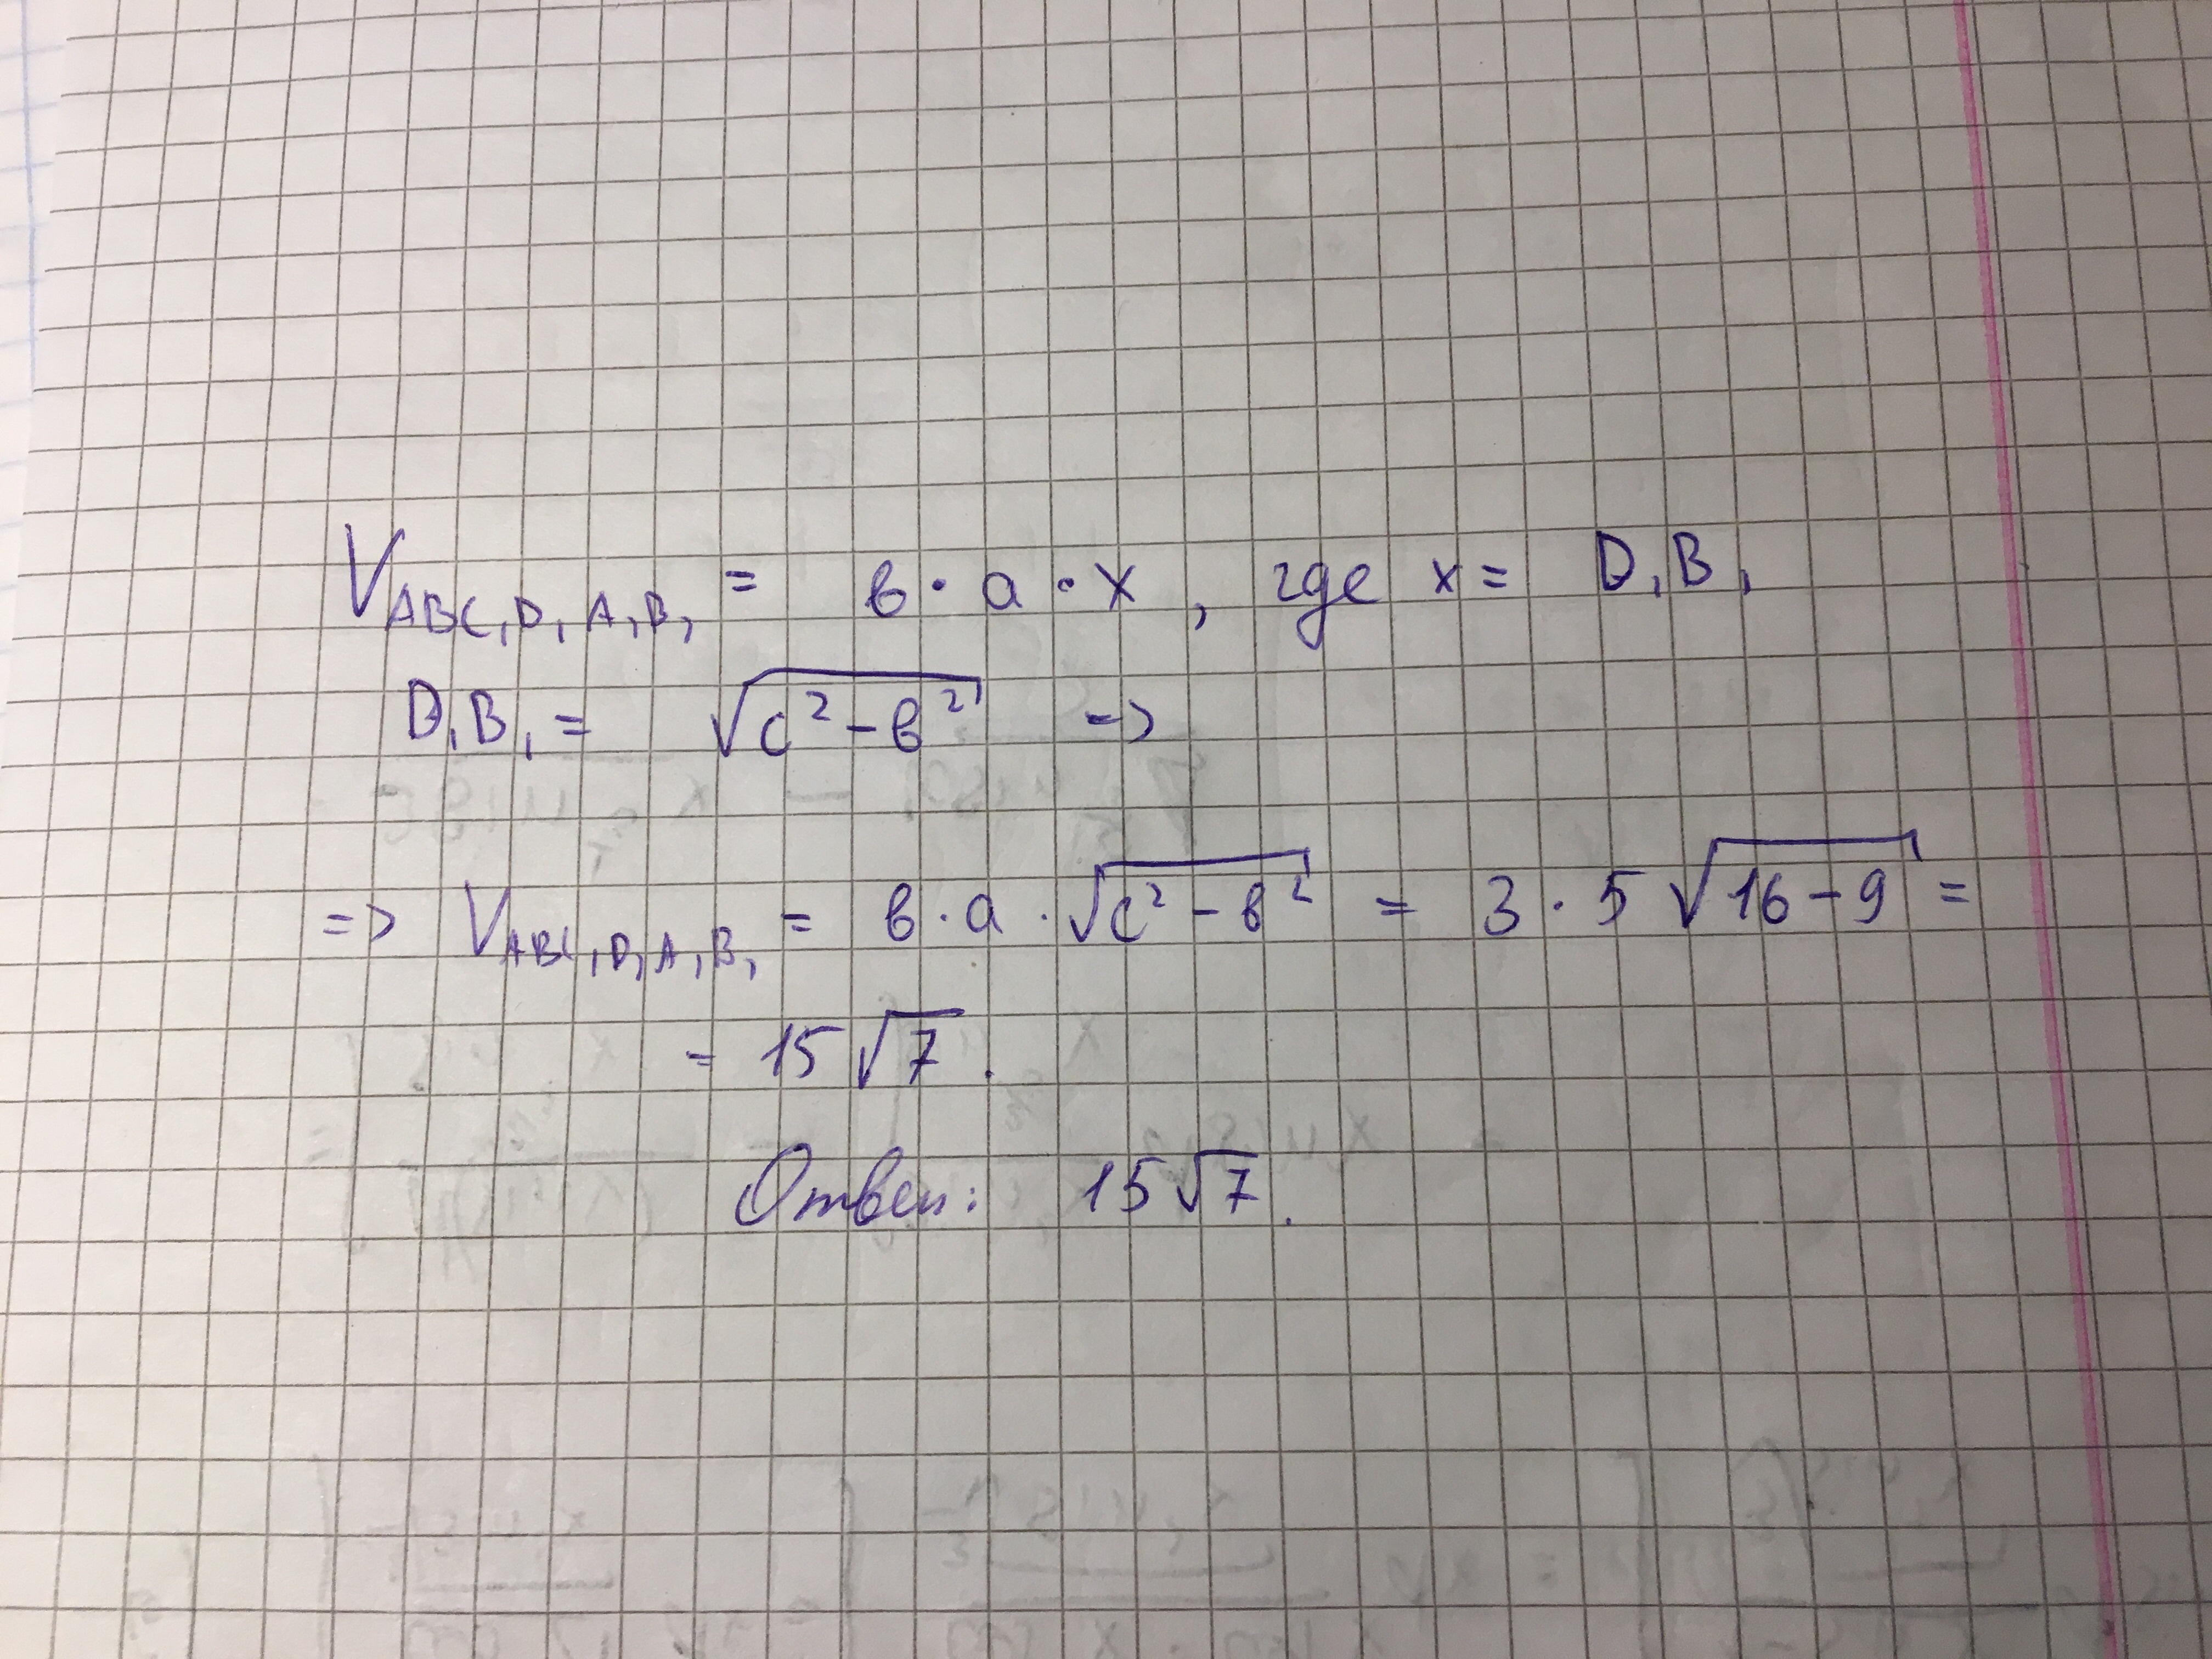 V_{ABC₁D₁A₁B₁} = в · а · x , где x = D₁B₁
D₁B₁ = √(c² − в²) =>
=> V_{ABC₁D₁A₁B₁} = в · а · √(c² − в²) = 3 · 5 √(16 − 9) =
= 15√7 .
Ответ: 15√7 .